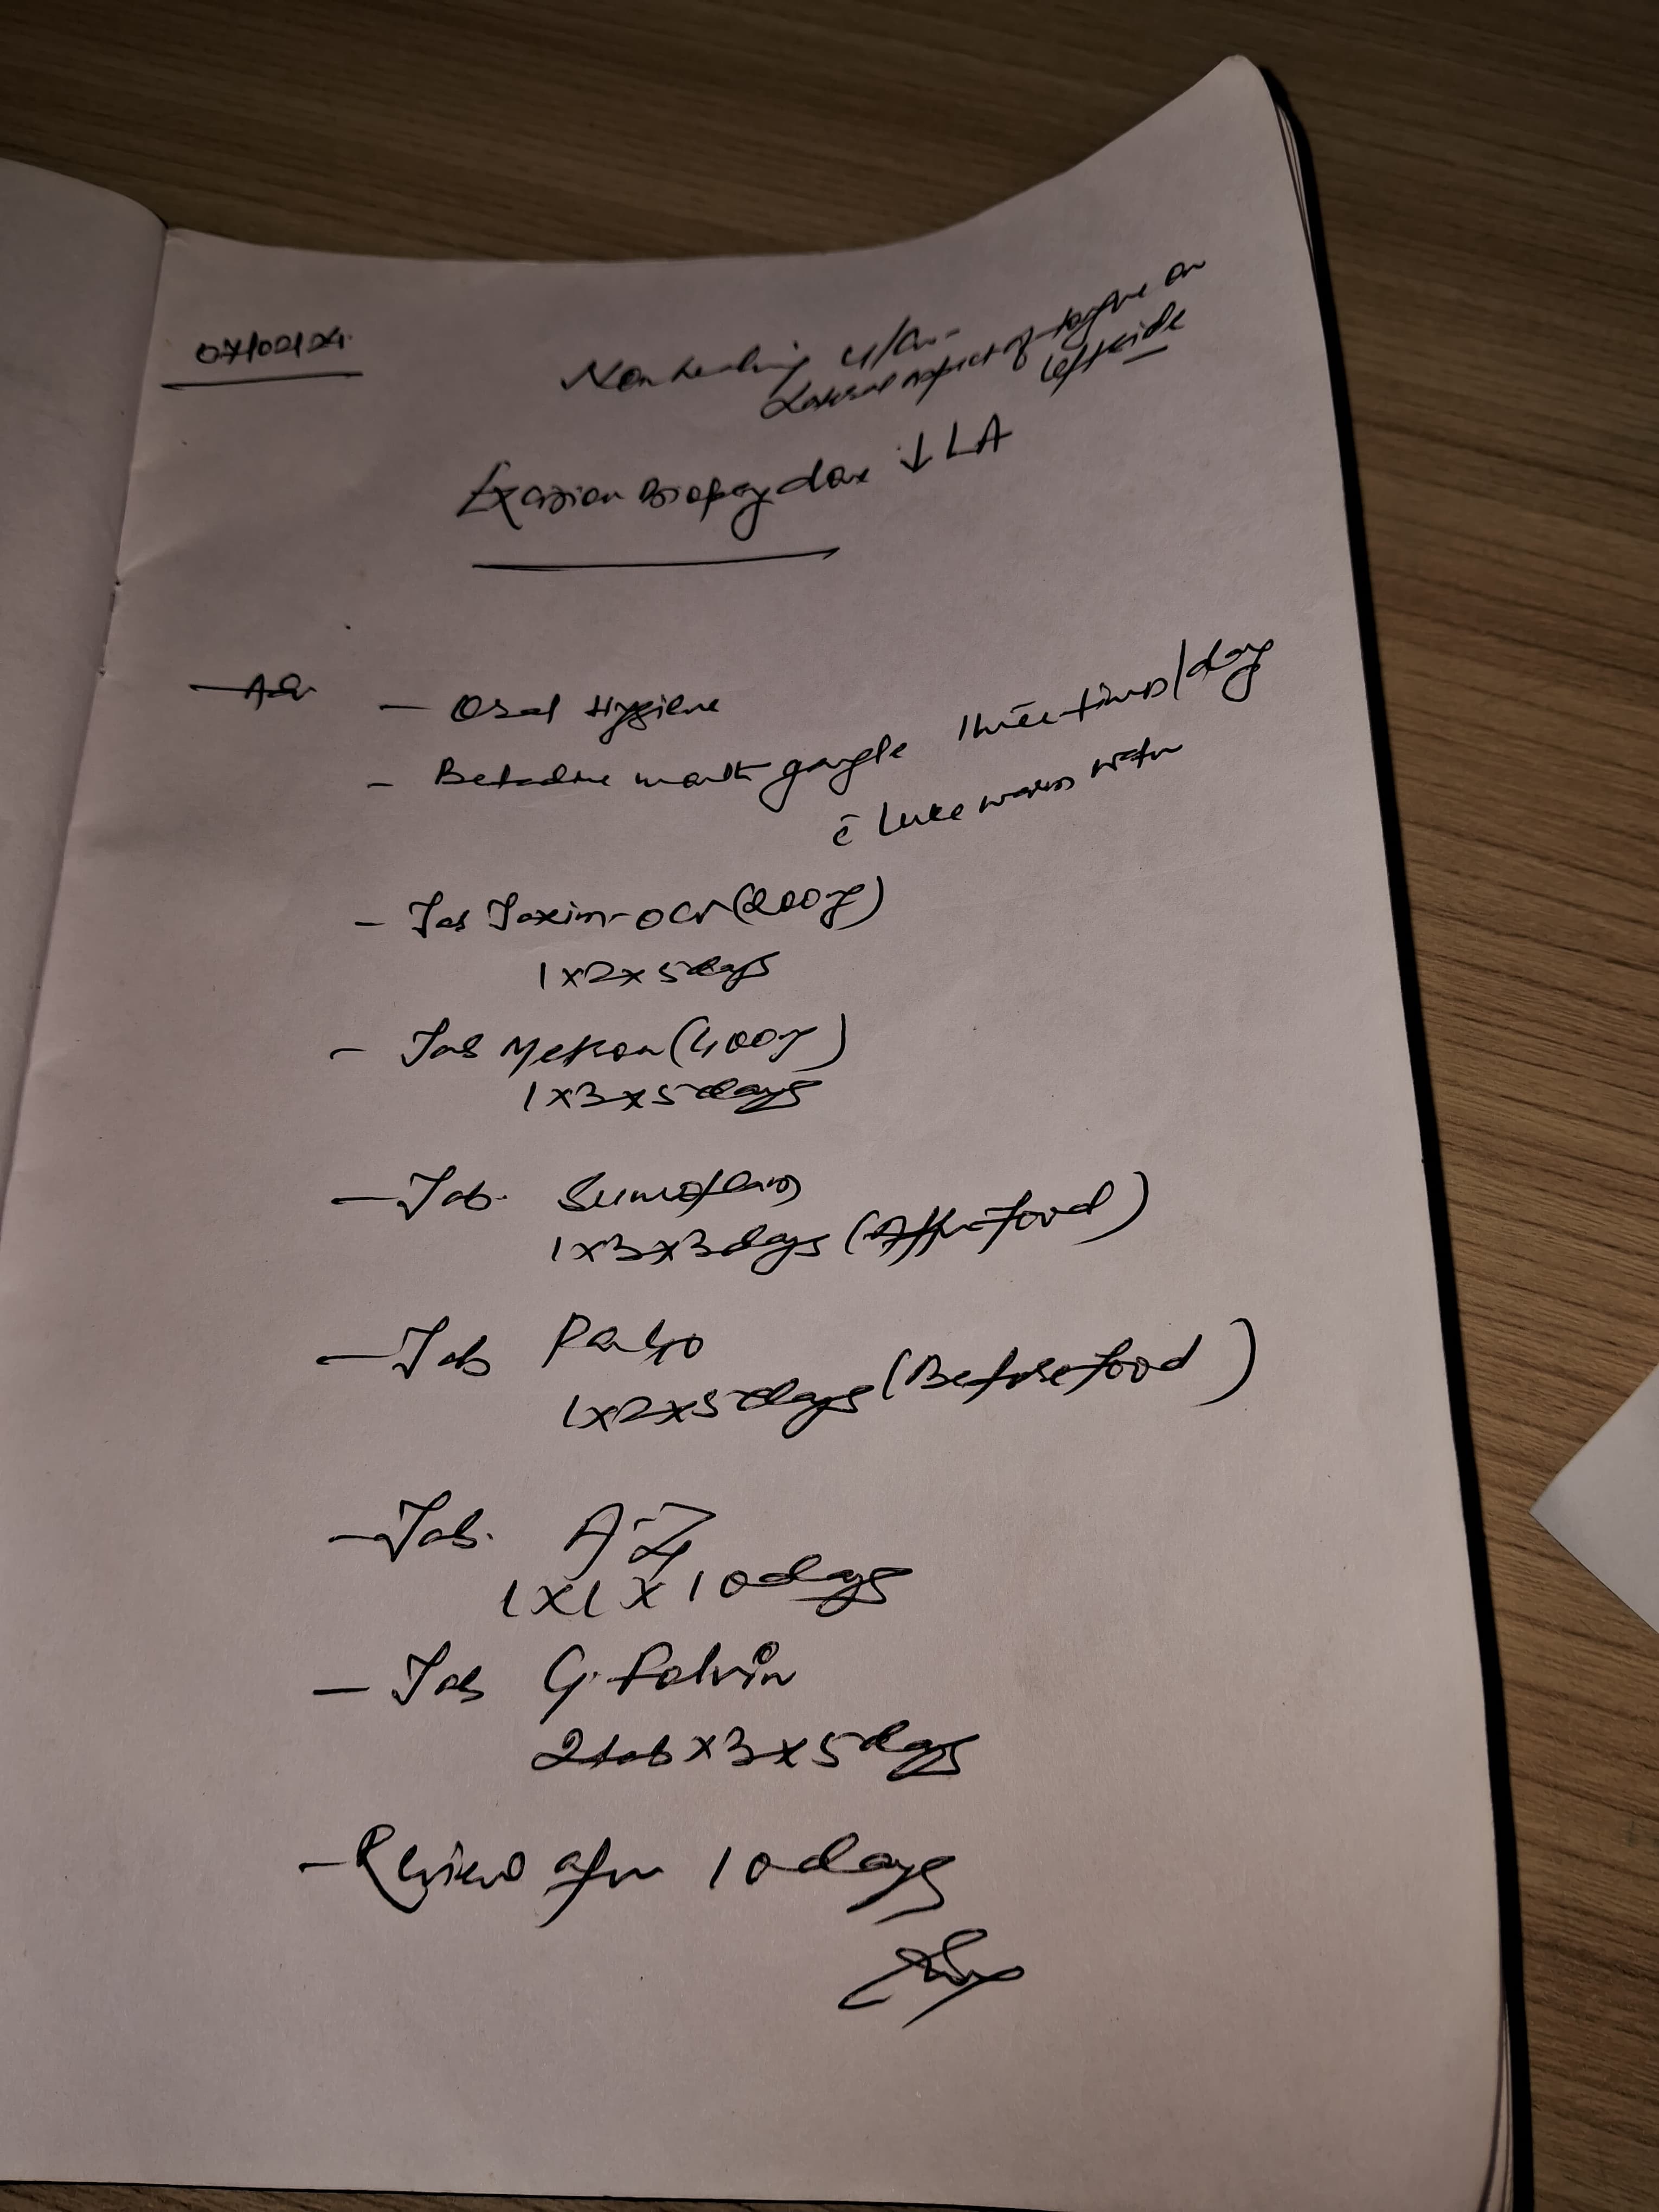 07/02/24
Non healing ulcer
Lateral aspect of tongue on
left side
Excision Biopsy done ↓ LA
- Adv
- Oral Hygiene
- Betadine mouth gargle three times/day
c̄ luke warm water
- Tab Taxim-O CV (200mg)
1x2x5days
- Tab Metron (400mg)
1x3x5days
- Tab.
1x3x3days (After food)
- Tab Pan 40
1x2x5days (Before food)
- Tab. A-Z
1x1x10days
- Tab
2tab x3x5days
- Review after 10days